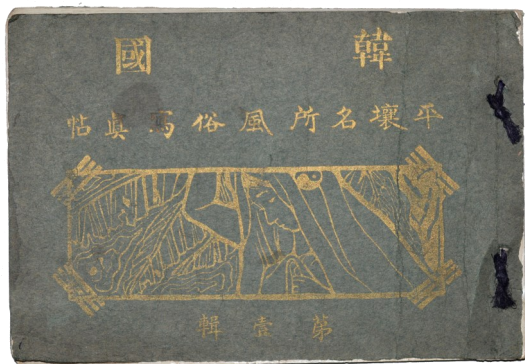 韓國
平壤名所風俗寫眞帖
第壹輯